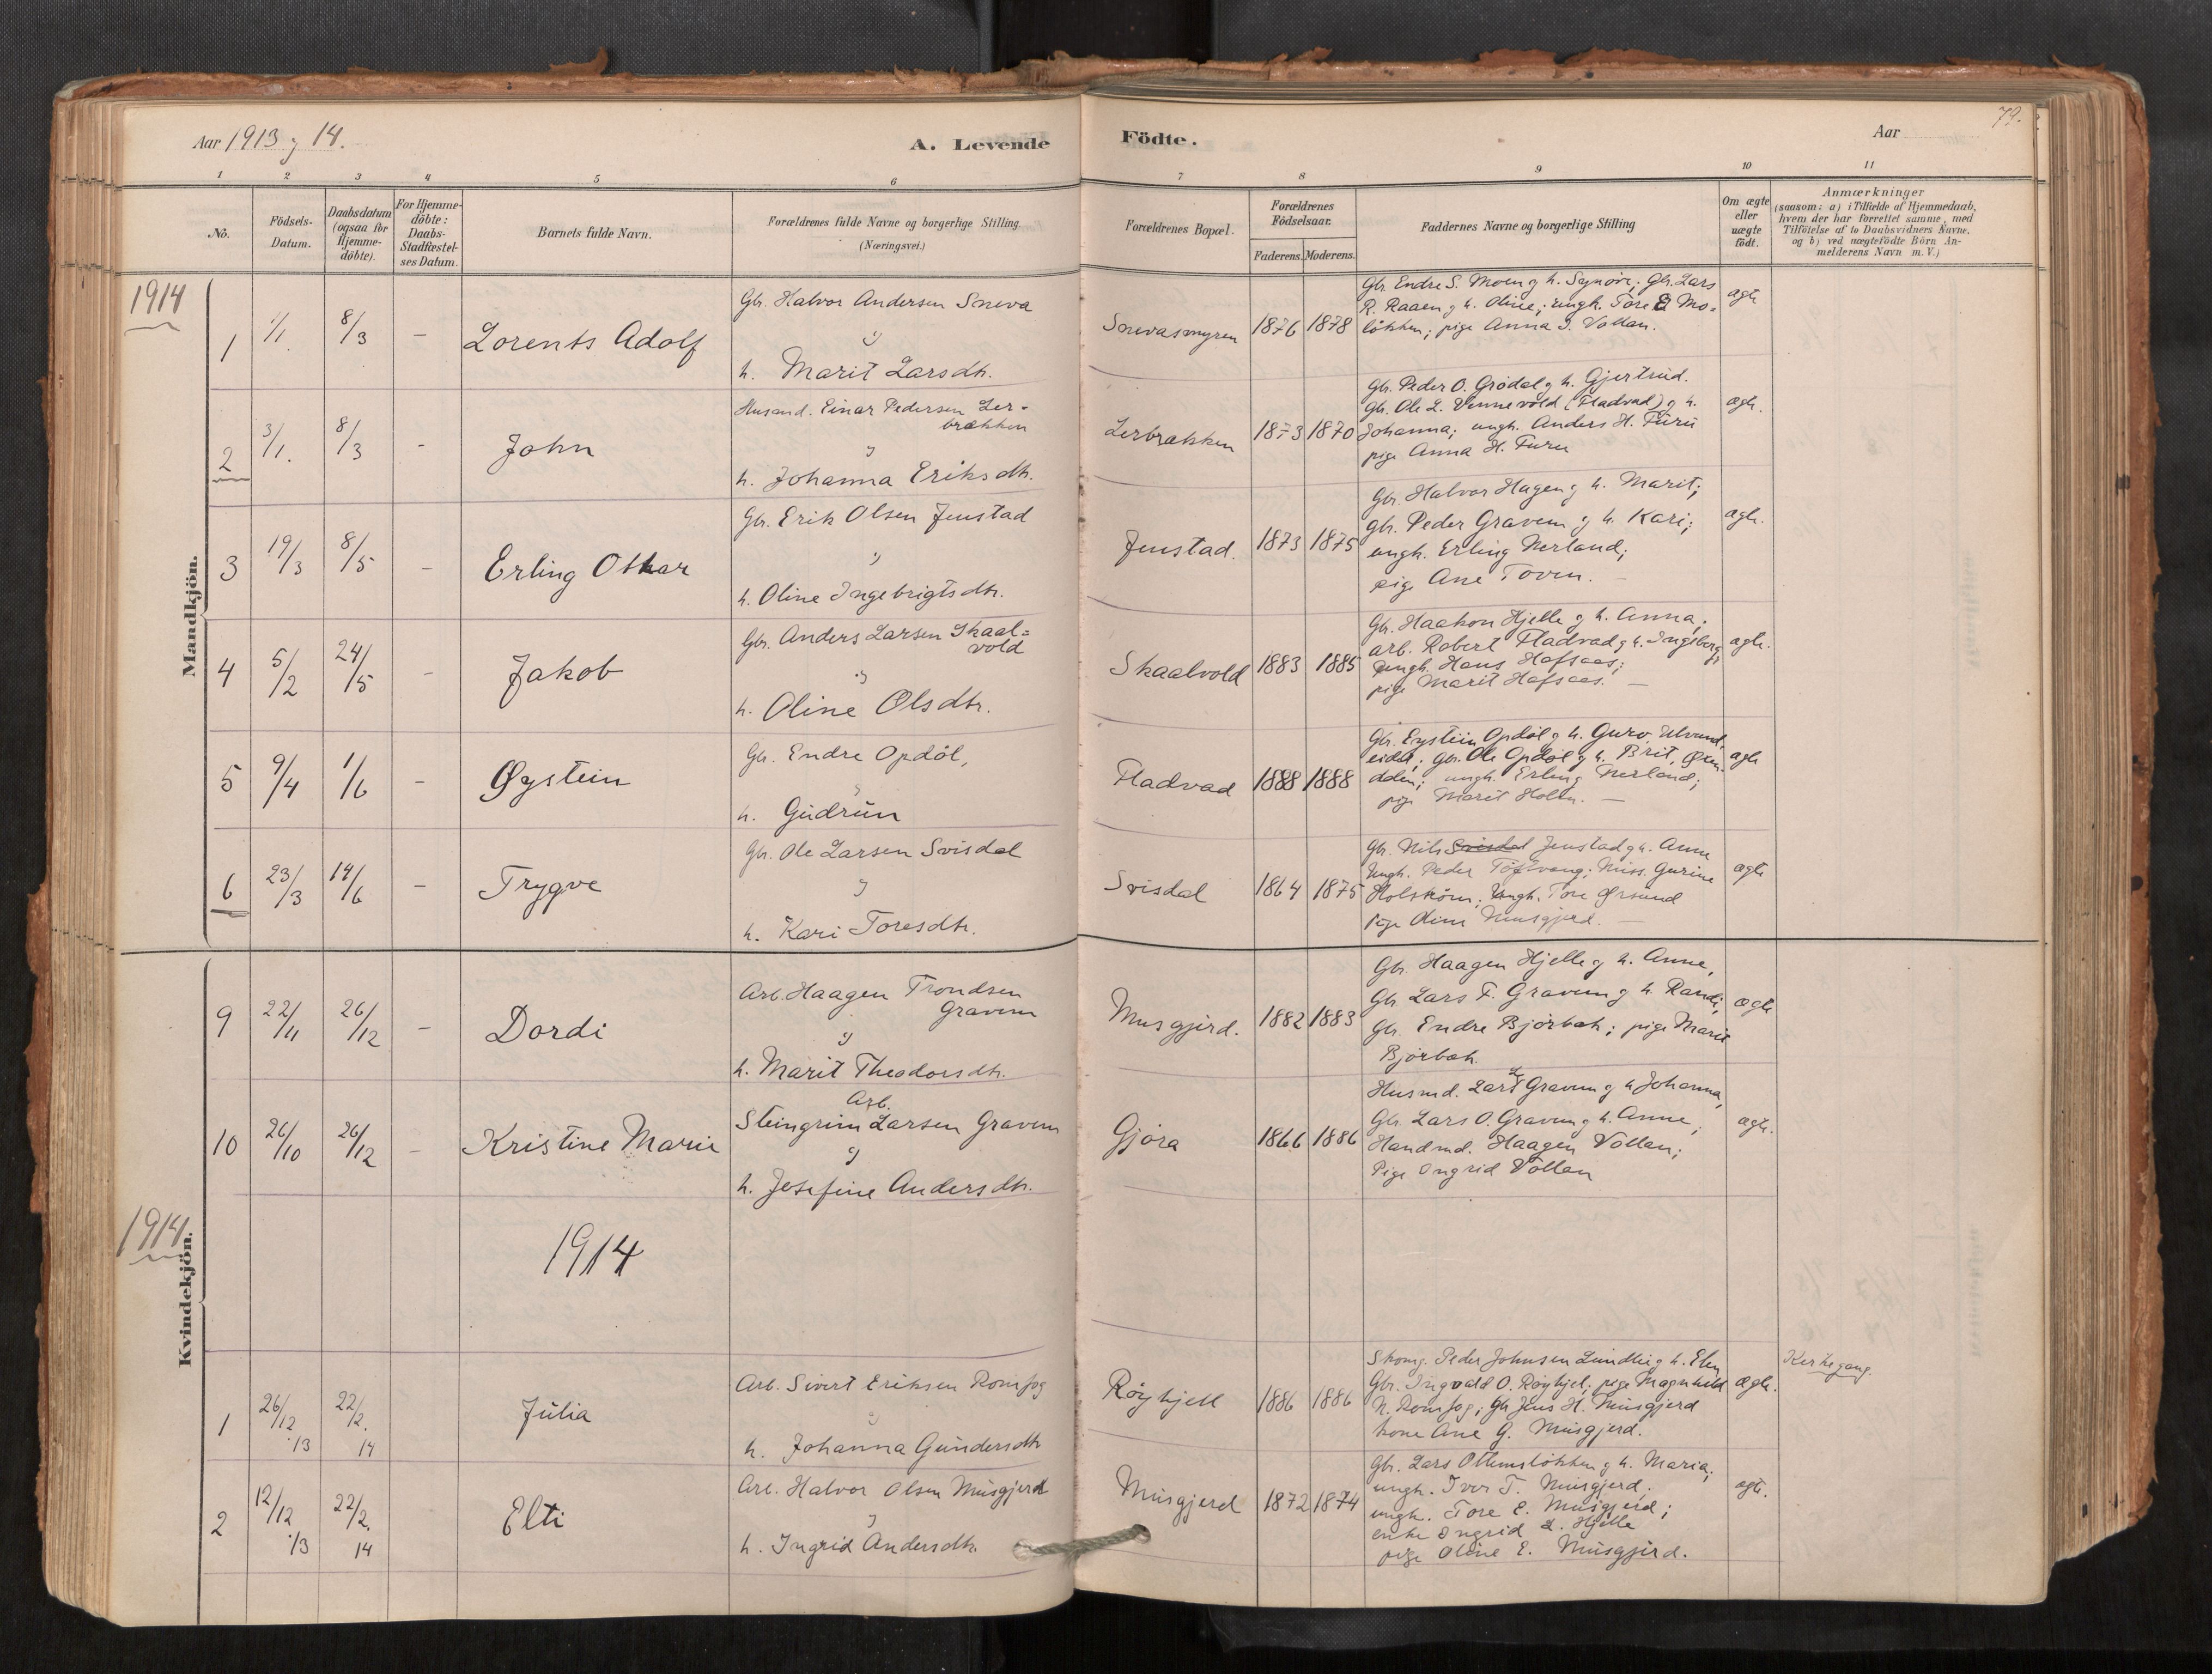 Aar 1913 og 14.
A. Levende
Födte.
Aar
79.
1 2 3 4 5 6 7 8 9 10 11
No.
Födsels-Datum.
Daabsdatum (ogsaa for Hjemme-döbte).
For Hjemme-döbte: Daabs-Stadfæstel-ses Datum.
Barnets fulde Navn.
Forældrenes fulde Navne og borgerlige Stilling (Næringsvei.)
Forældrenes Bopæl.
Forældrenes Födselsaar.
Faderens. Moderens.
Faddernes Navne og borgerlige Stilling
Om ægte eller uægte födt.
Anmærkninger
(saasom: a) i Tilfælde af Hjemmedaab,
hvem der har forrettet samme, med
Tilföielse af to Daabsvidners Navne,
og b) ved uægtefödte Börn An-
melderens Navn m.V.)
1914
Mandkjön.
1 1/1. 8/3 – Lorents Adolf
Gbr. Halvor Andersen Sneva
og
h. Marit Larsdtr.
Snevasmyren 1876 1878
Gbr. Endre S. Moen og h. Synøve; Gbr. Lars
R. Raaen og h. Oline; ungk. Tore E Mo-
løkken; pige Anna I. Vollan.
ægte
2 3/1. 8/3 - John
Husmd. Einar Pedersen Ler-
brækken
og
h. Johanna Eriksdtr.
Lerbrækken 1873 1870
Gbr. Peder O. Grødal og h. Gjertrud.
Gbr. Ole L. Vennevold (Fladvad) og h.
Johanna; ungk. Anders H. Furu
pige Anna H. Furu
ægte.
3 19/3 8/5 – Erling Oskar
Gbr. Erik Olsen Jenstad
og
h. Oline Ingebrigtsdtr.
Jenstad. 1873 1875
Gbr. Halvor Hagen og h. Marit;
gbr. Peder Gravem og h. Kari;
ungk. Erling Nerland;
pige Ane Toven. –
ægte.
4 5/2 24/5 – Jakob
Gbr. Anders Larsen Skaal-
vold
og
h. Oline Olsdtr.
Skaalvold 1883 1885
Gbr. Haakon Hjelle og h. Anna;
arb. Robert Fladvad og h. Ingeborg;
ungk. Hans Hafsaas;
pige Marit Hafsaas. –
ægte.
5 9/4 1/6 – Øystein
Gbr. Endre Opdøl,
og
h. Gudrun
Fladvad 1888 1888
Gbr. Eystein Opdøl og h. Guro, Ulvund-
eidet; gbr. Ole Opdøl og h. Brit, Øxen-
dalen; ungk. Erling Nerland;
pige Marit Holen. –
ægte
6 23/3 14/6 – Trygve
Gbr. Ole Larsen Svisdal
og
h. Kari Toresdtr.
Svisdal 1864 1875
Gbr. Nils Svisdal Jenstad og h. Anne
Ungk. Peder Tøftvang; Miss. Gurine
Holskøm; Ungk. Tore Ørsund
Pige Oline Musgjerd. –
ægte
Kvindekjön.
9 22/11 26/12 – Dordi
Arb. Haagen Trondsen
Gravem
og
h. Marit Theodorsdtr.
Musgjerd. 1882 1883
Gbr. Haagen Hjelle og h. Anne,
Gbr. Lars F. Gravem og h. Randi;
Gbr. Endre Bjørbak; pige Marit
Bjørbak.
ægte
10 26/10 26/12 – Kristine Marie
Arb.
Steingrim Larsen Gravem
og
h. Josefine Andersdtr.
Gjøra 1866 1886
Husmd. Lars Gravem og h. Johanna,
Gbr. Lars O. Gravem og h. Anne;
Handmd. Haagen Vollan;
Pige Ingrid Vollan
ægte.
1914.
1914
1 26/12 13 22/2. 14 Julia
Arb. Sivert Eriksen Romfog
og
h. Johanna Gundersdtr
Røykjell 1886 1886
Skomg. Peder Johnsen Lundli og h. Elen
Gbr. Ingvald O. Røykjel; pige Magnhild
N. Romfog; Gbr Jens H. Musgjerd
kone Ane G. Musgjerd.
ægte.
Kirkegang.
2 12/12 13 22/2. 14 Elti
Arb. Halvor Olsen Musgjerd
og
h. Ingrid Andersdtr.
Musgjerd 1872 1874
Gbr. Lars Ottemsløkken og h. Maria;
ungk. Iver T. Musgjerd;
ungk. Tore E. Musgjerd;
enke Ingrid L. Hjelle
pige Oline E. Musgjerd.
ægte.